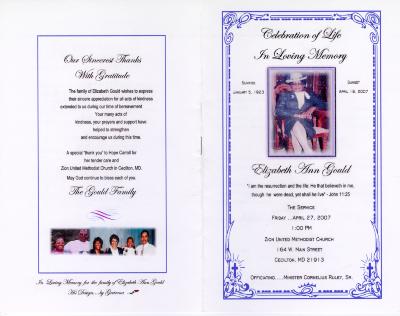 Our Sincerest Thanks
With Gratitude
The family of Elizabeth Gould wishes to express
their sincere appreciation for all acts of kindness
extended to us during our time of bereavement
Your many acts of
kindness, your prayers and support have
helped to strengthen
and encourage us during this time.
A special "thank you" to Hope Carroll for
her tender care and
Zion United Methodist Church in Cecilton, MD.
May God continue to bless each of you.
The Gould Family
In Loving Memory for the family of Elizabeth Ann Gould
Celebration of Life
In Loving Memory
Sunrise
January 5, 1923
Sunset
April 18, 2007
Elizabeth Ann Gould
"I am the resurrection and the life: He that believeth in me,
though he were dead, yet shall he live" - John 11:25
The Service
Friday ...April 27, 2007
1:00 PM
Zion United Methodist Church
164 W. Main Street
Cecilton, MD 21913
Officiating.....Minister Cornelius Ruley, Sr.